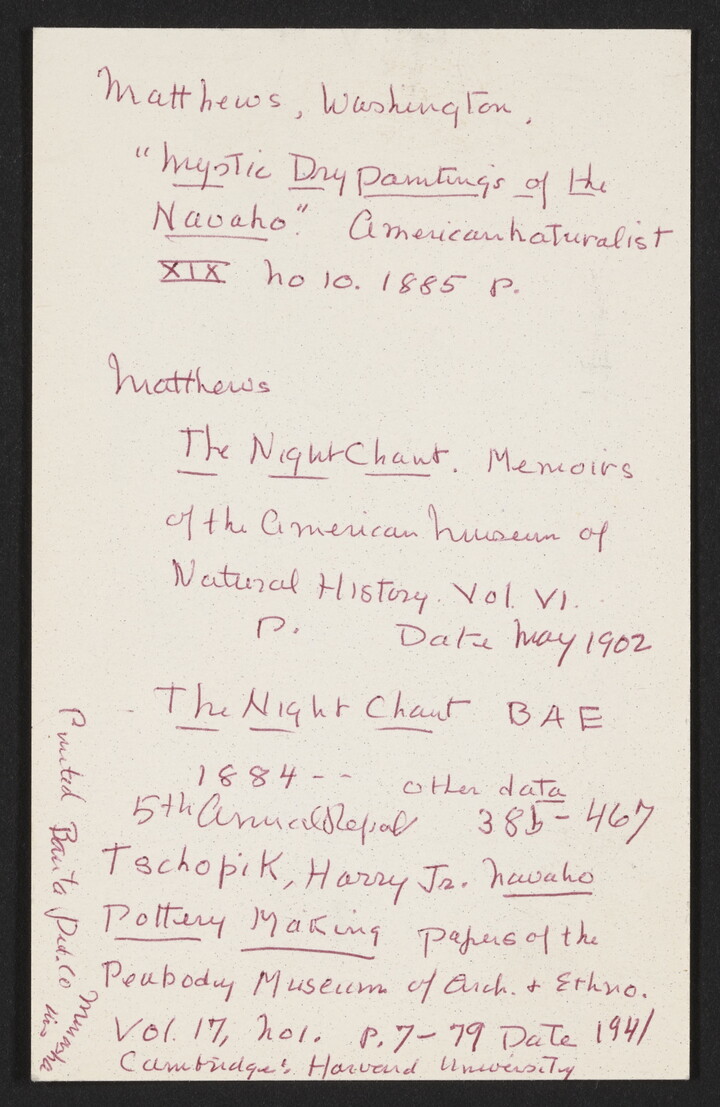 Matthews, Washington.
"Mystic Dry paintings of the
Navaho." American naturalist
XIX no 10. 1885 p.
Matthews
The Night Chant. Memoirs
of the American Museum of
Natural History. Vol. VI.
P. Date May 1902
The Night Chant BAE
1884 -- other data
5th Annual Repor 385-467
Tschopik, Harry Jr. Navaho
Pottery Making papers of the
Peabody Museum of Arch. & Ethno.
Vol. 17, No1. p. 7-79 Date 1941
Cambridge: Harvard University
Printed Banta Pub. Co Menasha
Wis